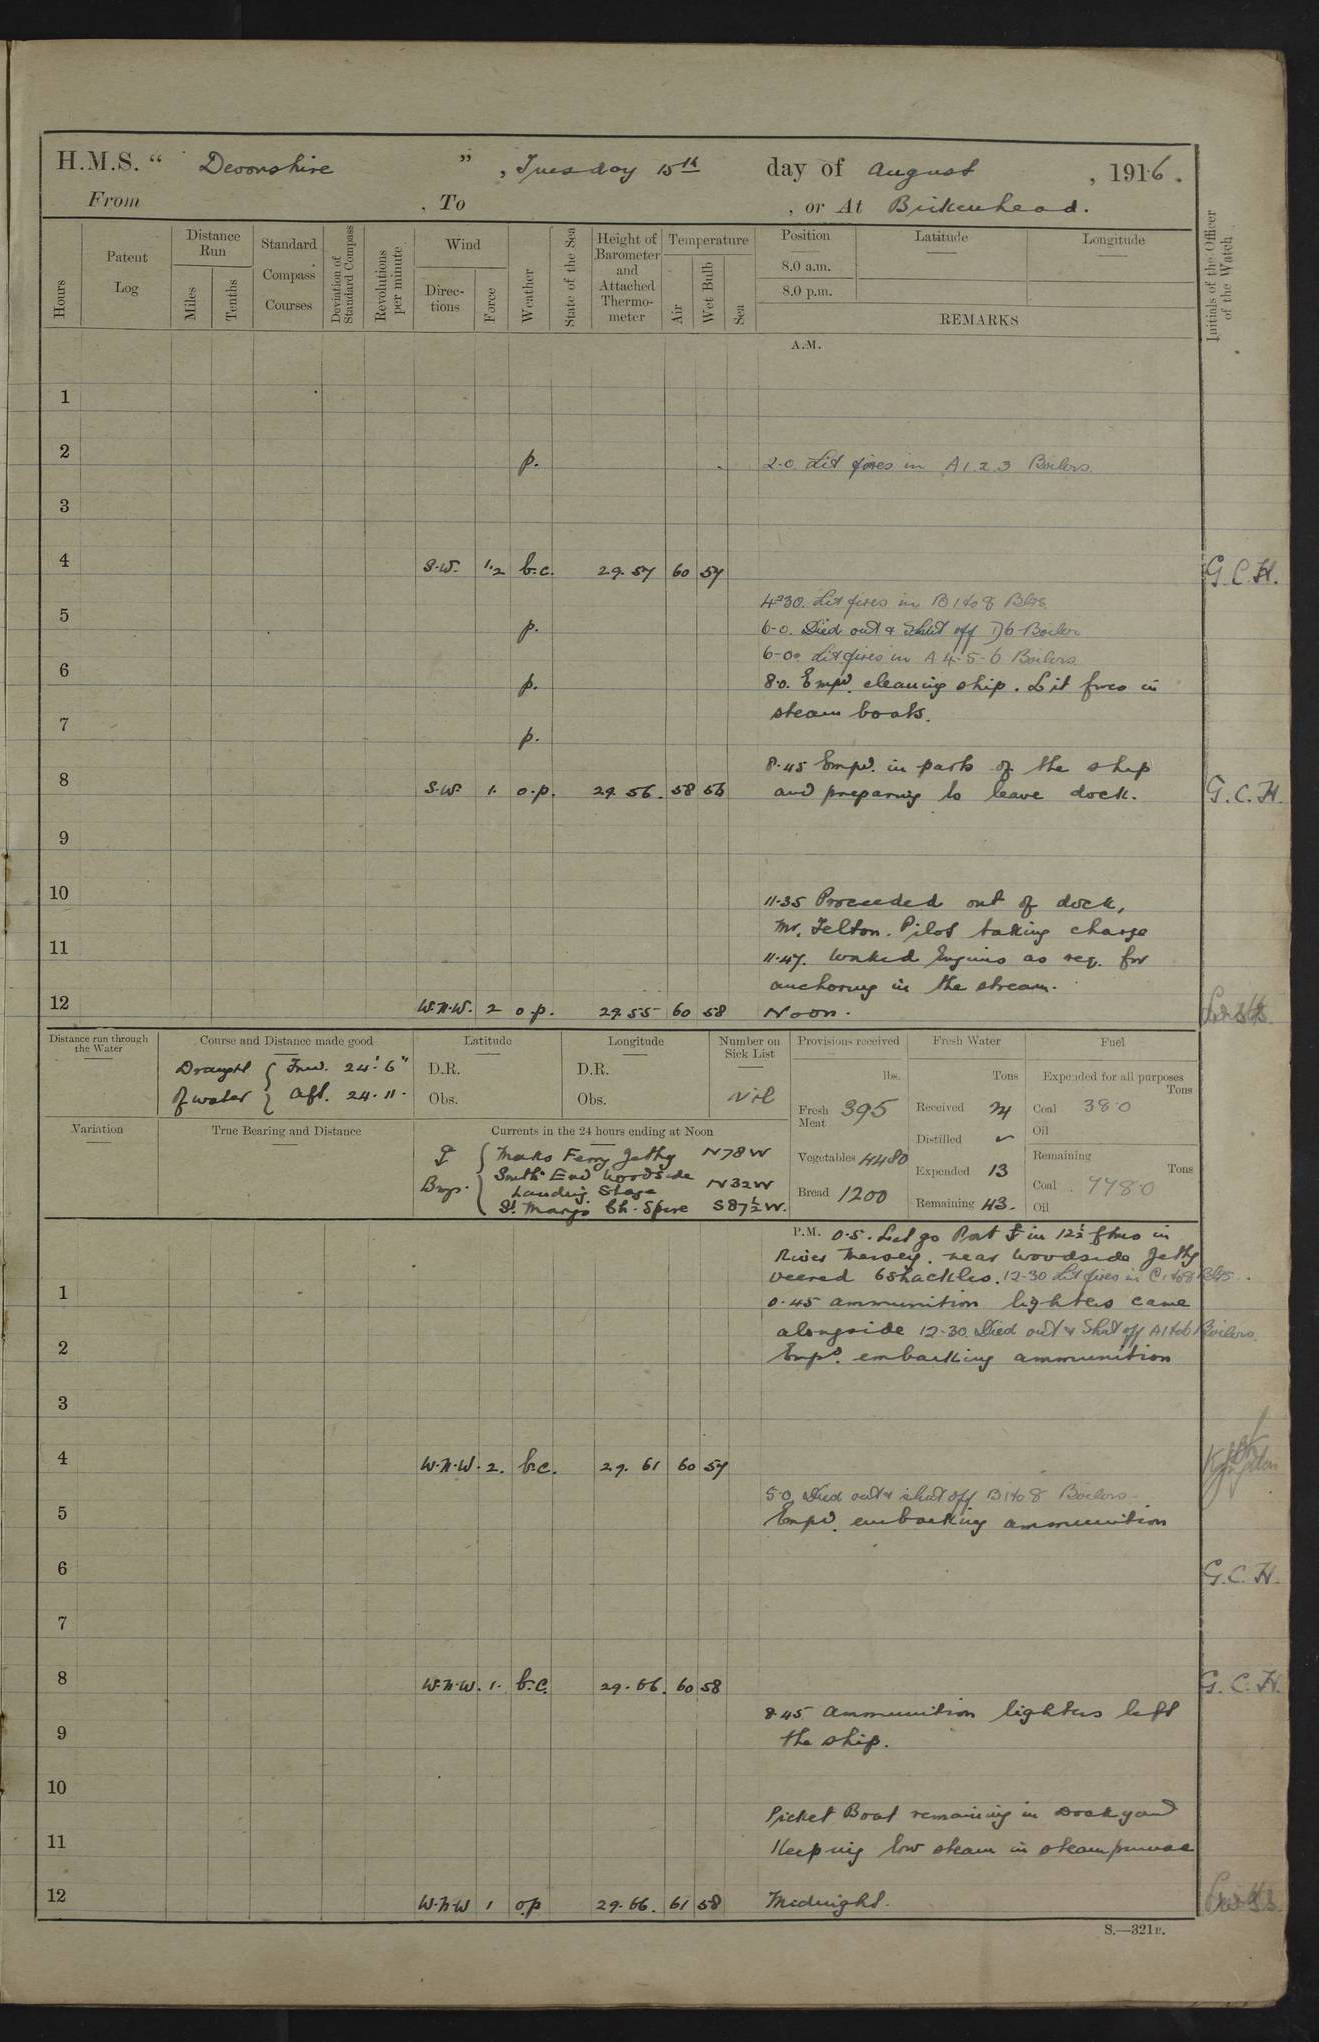 H.M.S. “ Devonshire ” , Tuesday 15th day of August , 1916.
From , To , or At Birkenhead.
Hours
Patent Log
Distance Run
Miles
Tenths
Standard Compass Courses
Deviation of Standard Compass
Revolutions per minute
Wind
Directions
Force
Weather
State of the Sea
Height of Barometer and Attached Thermometer
Temperature
Air
Wet Bulb
Sea
Position
8.0 a.m.
8.0 p.m.
Latitude
Longitude
REMARKS
Initials of the Officer of the Watch
A.M.
1
2 p. 2.0 Lit fires in A 1.2.3 Boilers.
3
4 S.W. 1.2 b.c. 29.57 60 57 G.C.H.
4.30. Lit fires in B 1 to 8 Blrs
5
p. 6-0. Died out & Shut off D6 Boiler
6-0. Lit fires in A 4-5-6 Boilers
6
p. 8.0. Empd. cleaning ship. Lit fires in
steam boats.
7
p.
8.45 Empd. in parts of the ship
8 S.W. 1. o.p. 29.56. 58 56 and preparing to leave dock. G.C.H.
9
10
11.35 Proceeded out of dock,
Mr. Felton. Pilot taking charge
11
11.47. Worked Engines as req. for
anchoring in the stream.
12 W.N.W. 2 o.p. 29.55 60 58 Noon.
Distance run through the Water
Course and Distance made good
Draught of water { Fwd. 24' 6"
Aft. 24. 11.
Latitude
D.R.
Obs.
Longitude
D.R.
Obs.
Number on Sick List
Nil
Provisions received
lbs.
Fresh Meat 395
Vegetables 4480
Bread 1200
Fresh Water
Tons
Received 24
Distilled
Expended 13
Remaining 43.
Fuel
Expended for all purposes
Tons
Coal 38.0
Oil
Remaining
Tons
Coal 778.0
Oil
Variation
True Bearing and Distance
Currents in the 24 hours ending at Noon
Brgs. { Ferry Jetty N78W
South End Woodside
Landing Stage N32W
St. Marys Ch. Spire S87½W.
P.M. 0.5. Let go Port in 12½ fms in
River Mersey. near Woodside Jetty
veered 6 shackles. 12-30 Lit fires in C1 to 8 Blrs.
1
0.45 ammunition lighters came
alongside 12-30. Died out & Shut off A1 to 6 Boilers
2
Empd. embarking ammunition
3
4 W.N.W. 2. b.c. 29.61 60 57
5.0 Died out & shut off B 1 to 8 Boilers.
5
Empd. embarking ammunition
6 G.C.H.
7
8 W.N.W. 1. b.c. 29.66. 60 58 G.C.H.
8.45 ammunition lighters left
9
the ship.
10
Picket Boat remaining in Dockyard
11
Keeping low steam in steam pinnace
12 W.N.W 1 o.p 29.66. 61 58 Midnight.
S.—321B.